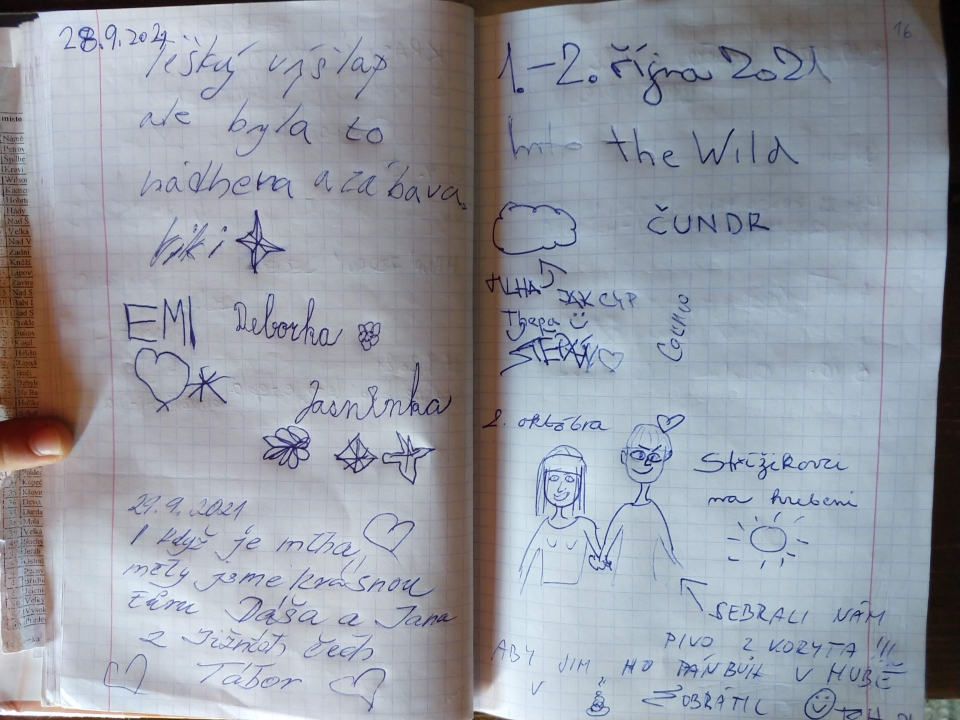 28.9.2021
Těšký výšlap
ale byla to
nádhera a zábava
Kiki
EMI Deborka
Jasmínka
29.9.2021
I když je mlha,
měly jsme krásnou
túru Dáša a Jana
z Jižních Čech
Tábor
16
1.-2. října 2021
Into the Wild
ČUNDR
MLHA JAK CYP
Thapa
ŠTĚPÁN
2. októbra
Strížikovci
na hrebeni
SEBRALI NÁM
PIVO Z KORYTA !!!
ABY JIM HO PÁNBŮH V HUBĚ
V
OBRÁTIL